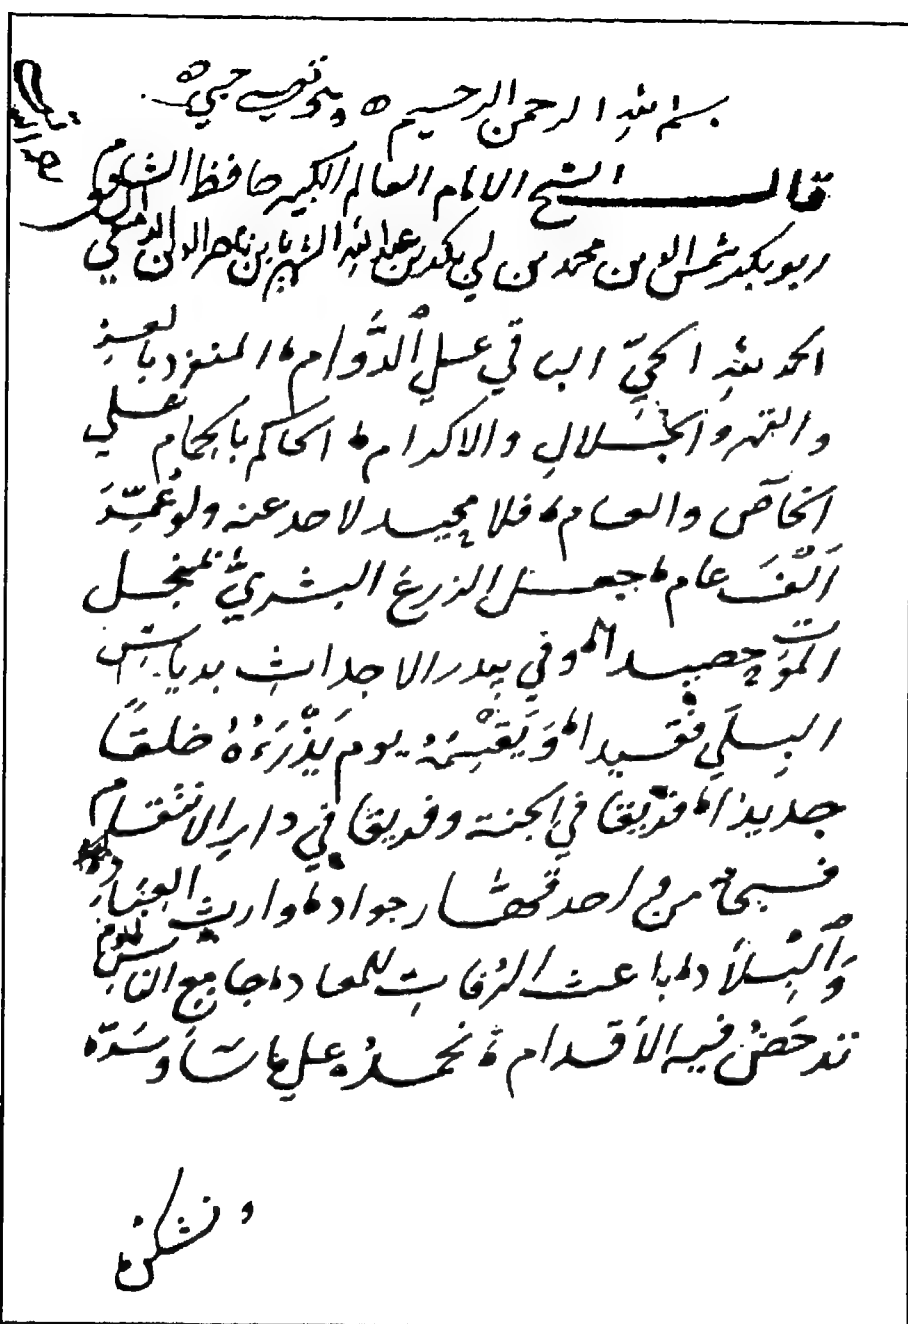 بسم الله الرحمن الرحيم وبه توفيقي حسبي
قال الشيخ الامام العالم الكبير حافظ الشام
ابو بكر شمس الدين محمد بن ابي بكر بن عبد الله الشهير بابن ناصر الدين الدمشقي
الحمد لله الحيّ الباقي على الدَّوام المنفرد بالعز
والقهر والجَلالِ والاكرام الحاكم بالحِمام على
الخاصّ والعام فلا محيد لاحد عنه ولو عُمِّرَ
اَلْفَ عام جعل الزرع البشريّ بمنجل
الموت حصيدا وفي بيدر الاجداثِ بدياس
البِلَى فقيدا وَيَقْسِمُهُ يوم يَذْرَءُهُ خلقًا
جديدا فريقا في الجنة وفريقا في دارِ الانتقام
فسبحانه من واحد قهّار جواد وارثِ العِبَاد
وَالْبِلاَد باعث الرُفاتِ للمعاد جامع الناس ليوم
تدحَضُ فيه الأقدام نحمده على ما شآ وسَرّه
ونشكره